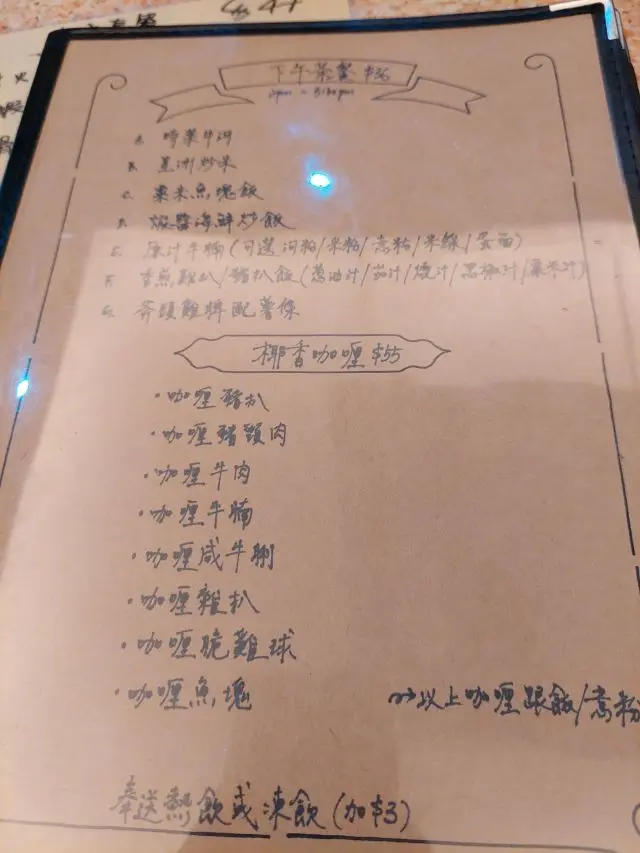 下午茶餐 $36
A. 時菜牛河
B. 星洲炒米
C. 粟米魚塊飯
D. 蝦醬海鮮炒飯
E. 原汁牛腩(可選河粉/米粉/意粉/米線/蛋面)
F. 吉魚雞扒/豬扒飯(蔥油汁/茄汁/燒汁/黑椒汁/粟米汁)
G. 斧頭雞髀配薯條
椰香咖喱 $55
·咖喱豬扒
·咖喱豬頸肉
·咖喱牛肉
·咖喱牛腩
·咖喱咸牛脷
·咖喱雞扒
·咖喱脆雞球
·咖喱魚塊
以上咖喱跟飯/意粉
奉送熱飲或凍飲(加$3)